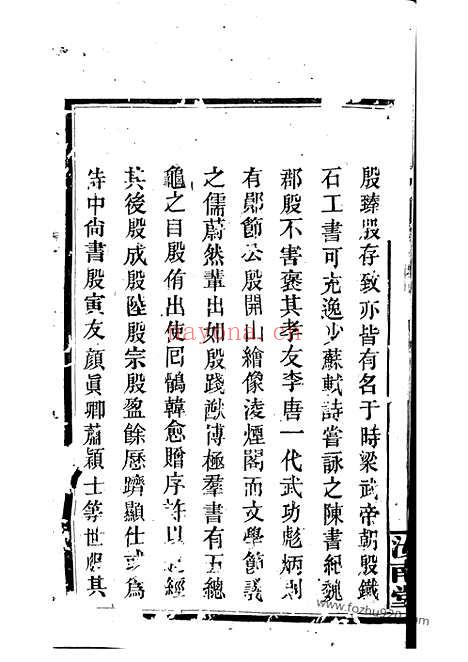 殷臻殷存致亦皆有名于時梁武帝朝殷鐵
石工書可充逸少蘇軾詩嘗詠之陳書紀魏
郡殷不害褒其孝友李唐一代武功彪炳則
有鄖節公殷開繪像淩煙閣而文學節議
之儒蔚然輩出如殷踐猷博極羣書有五總
龜之目殷侑出使囘鶻韓愈贈序許以經
其後殷成殷陞殷宗殷盈餘歷躋顯仕或爲
侍中尚書殷寅友顔眞卿蕭穎士等世服其
汝南堂
dayona.cn
www.fozhu920.com